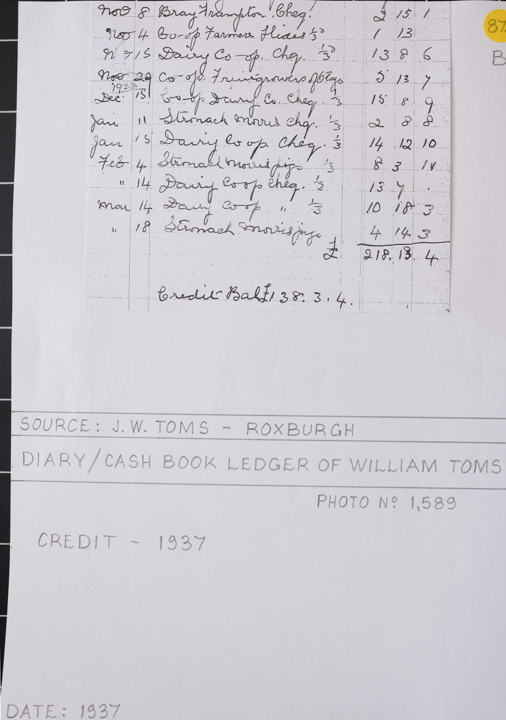 Nov 8 Bray Frampton Cheq. 2 15 1
Nov 4 Co-op Farmers Hides 1/3 1 13
" 15 Dairy Co-op. Chq. 1/3 13 8 6
Nov 29 Co-op. Fruitgrowers of Otago 5 13 7
Dec. 15 Co-op Dairy Co. Cheq. 1/3 15 8 9
Jan 11 Stronach Morris chq. 1/3 2 8 8
Jan 15 Dairy Co op Cheq. 1/3 14 12 10
Feb 4 Stronach Morris pigs 1/3 8 3 10
" 14 Dairy Coop Cheq. 1/3 13 7 .
Mar 14 Dairy Coop " 1/3 10 18 3
" 18 Stronach Morris pigs 4 14 3
£ 218. 13 4
Credit Bal £138. 3. 4.
87
B
SOURCE: J.W. TOMS - ROXBURGH
DIARY/CASH BOOK LEDGER OF WILLIAM TOMS
PHOTO Nº 1,589
CREDIT - 1937
DATE: 1937